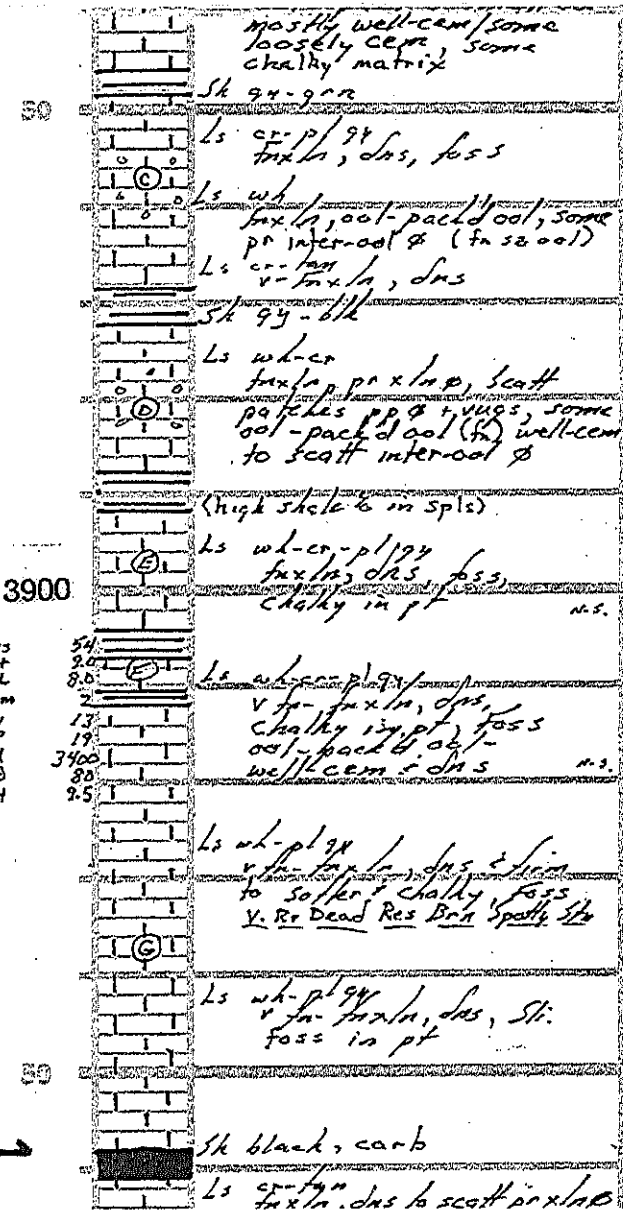 mostly well-cem/some
loosely cem, some
chalky matrix
Sh gy-grn
50
Ls cr-pl gy
fnxln, dns, foss
C
Ls wh
fnxln, ool-packd ool, some
pr inter-ool ø (fn sz ool)
Ls cr-tan
v-fnxln, dns
Sh gy-blk
Ls wh-cr
fnxln, pr xln ø, scatt
D
patches pp ø + vugs, some
ool-packd ool (fn) well-cem
to scatt inter-ool ø
(high shale % in spls)
Ls wh-cr-pl gy
E
fnxln, dns, foss,
3900
chalky in pt N.S.
54
9.0
8.0
Ls wh-cr-pl gy
2
v fn-fnxln, dns,
13
chalky in pt, foss
19
ool-packd ool-
3400
well-cem & dns N.S.
80
9.5
Ls wh-pl gy
v fn-fnxln, dns & firm
to softer & chalky, Foss
V. Rr Dead Res Brn Spotty Stn
G
Ls wh-pl gy
v fn-fnxln, dns, Sli.
foss in pt
50
Sh black, carb
Ls cr-tan
fnxln, dns to scatt pr xln ø